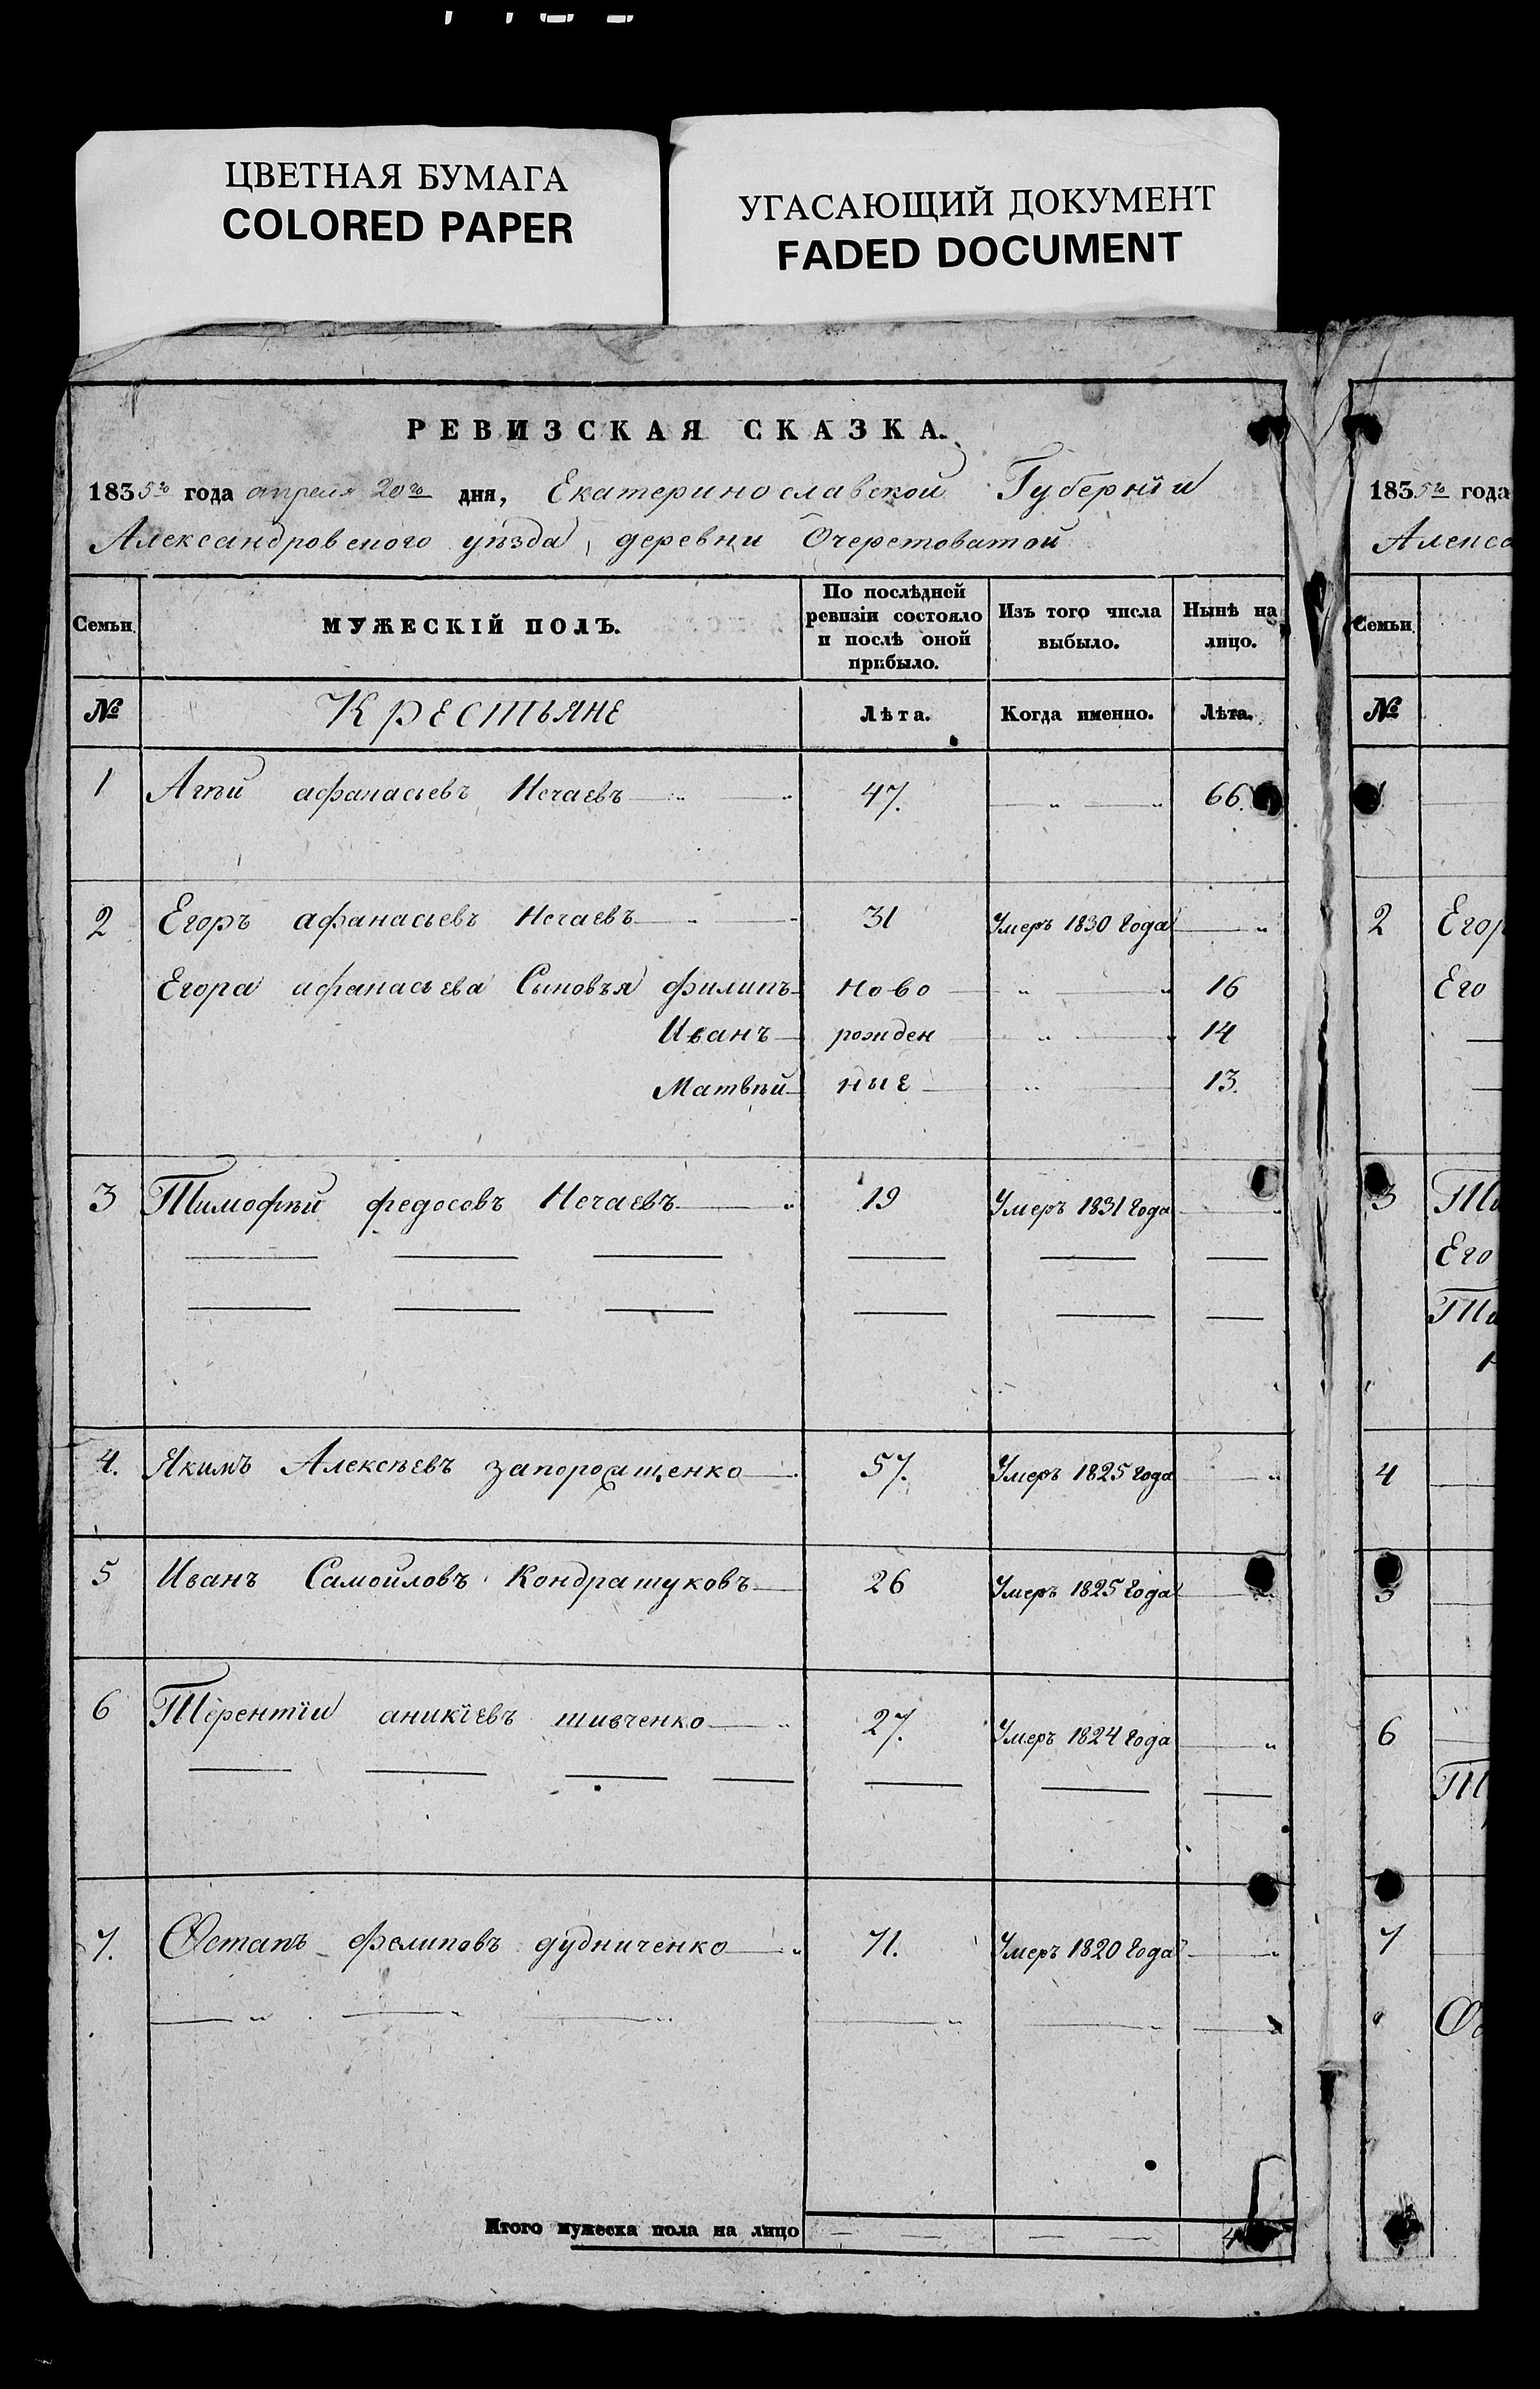 ЦВЕТНАЯ БУМАГА
COLORED PAPER
УГАСАЮЩИЙ ДОКУМЕНТ
FADED DOCUMENT
РЕВИЗСКАЯ СКАЗКА.
1835го года апреля 20го дня, Екатеринославской Губернїи
Александровского уѣзда, деревни Очеретоватой
Семьи. МУЖЕСКІЙ ПОЛЪ. По послѣдней ревизіи состояло и послѣ оной прибыло. Изъ того числа выбыло. Нынѣ на лицо.
№ Крестьяне Лѣта. Когда именно. Лѣта.
1 Агѣй афанасьевъ Нечаевъ 47. 66.
2 Егоръ афанасьевъ Нечаевъ 31 Умеръ 1830 Года
Егора афанасьева Сыновья филипъ Ново 16
Иванъ рожден 14
Матвѣй ные 13.
3 Тимофѣй федосовъ Нечаевъ 19 Умеръ 1831 Года
4. Якимъ Алексѣевъ запорощенко 57. Умеръ 1825 Года
5 Иванъ Самойловъ Кондратуковъ 26 Умеръ 1825 Года
6 Терентїй аникїевъ шивченко 27. Умеръ 1824 Года
7. Остапъ фелиповъ дудниченко 71. Умеръ 1820 Года
Итого мужеска пола на лицо 4
1835го года
Алекса
Семьи.
№
2 Егор
Его
3 Ти
Его
Ти
4
5
6
Т
7
Ос